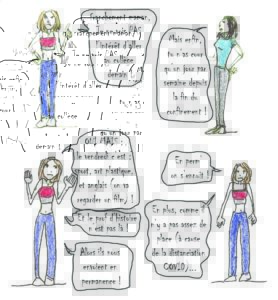 Franchement maman,
PAS
intérêt d'aller
au collège
demain !
Mais enfin,
tu n'as eu
qu'un jour par
semaine depuis
la fin du
confinement !
OUI MAIS
le vendredi c'est
sport, art plastique,
et anglais : on va
regarder un film,
Et le prof d'histoire
n'est pas là !
En perm
on s'ennuit !
En plus, comme il
n'y a pas assez de
place (à cause
de la distanciation
COVID)...
Alors ils nous
envoient en
permanence !